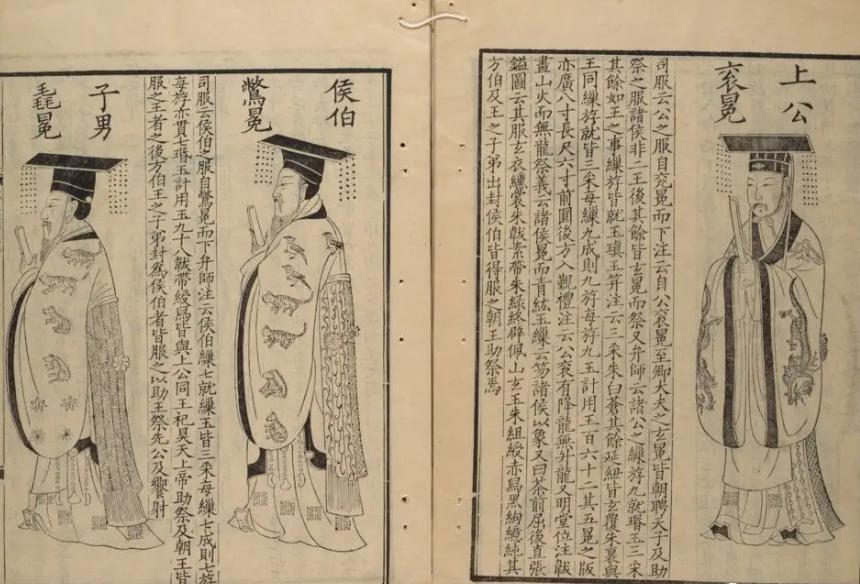 上公
袞冕
司服云公之服自衮冕而下注云自公衮冕至卿大夫之玄冕皆朝聘天子及助
祭之服諸侯非二王後其餘皆玄冕而祭又弁師云諸公之繅斿九就瑉玉三采
其餘如王之事繅斿皆就玉瑱玉笄注云三采朱白蒼其餘延紐皆玄覆朱裏與
王同繅斿就皆三采每繅九成則九斿每斿九玉計用玉百六十二其五冕之版
亦廣八寸長尺六寸前圓後方又覲禮注云公衮有降龍無升龍又明堂位注韍
畫山火而無龍祭義云諸侯冕而青紘玉繅云笏諸侯以象又曰荼前屈後直張
鎰圖云其服玄衣纁裳朱韍素帶朱緑終辟佩山玄玉朱組綬赤舄黑絇繶純其
方伯及王之子弟出封侯伯皆得服之朝王助祭焉
侯伯
鷩冕
司服云侯伯之服自鷩冕而下弁師注云侯伯繅七就繅玉皆三采每繅七成則七斿
每斿亦貫七瑉玉計用玉九十八韍帶綬舄皆與上公同王祀昊天上帝助祭及朝王皆
服之王者之後方伯王之子弟封爲侯伯者皆服之以助王祭先公及饗射
子男
毳冕